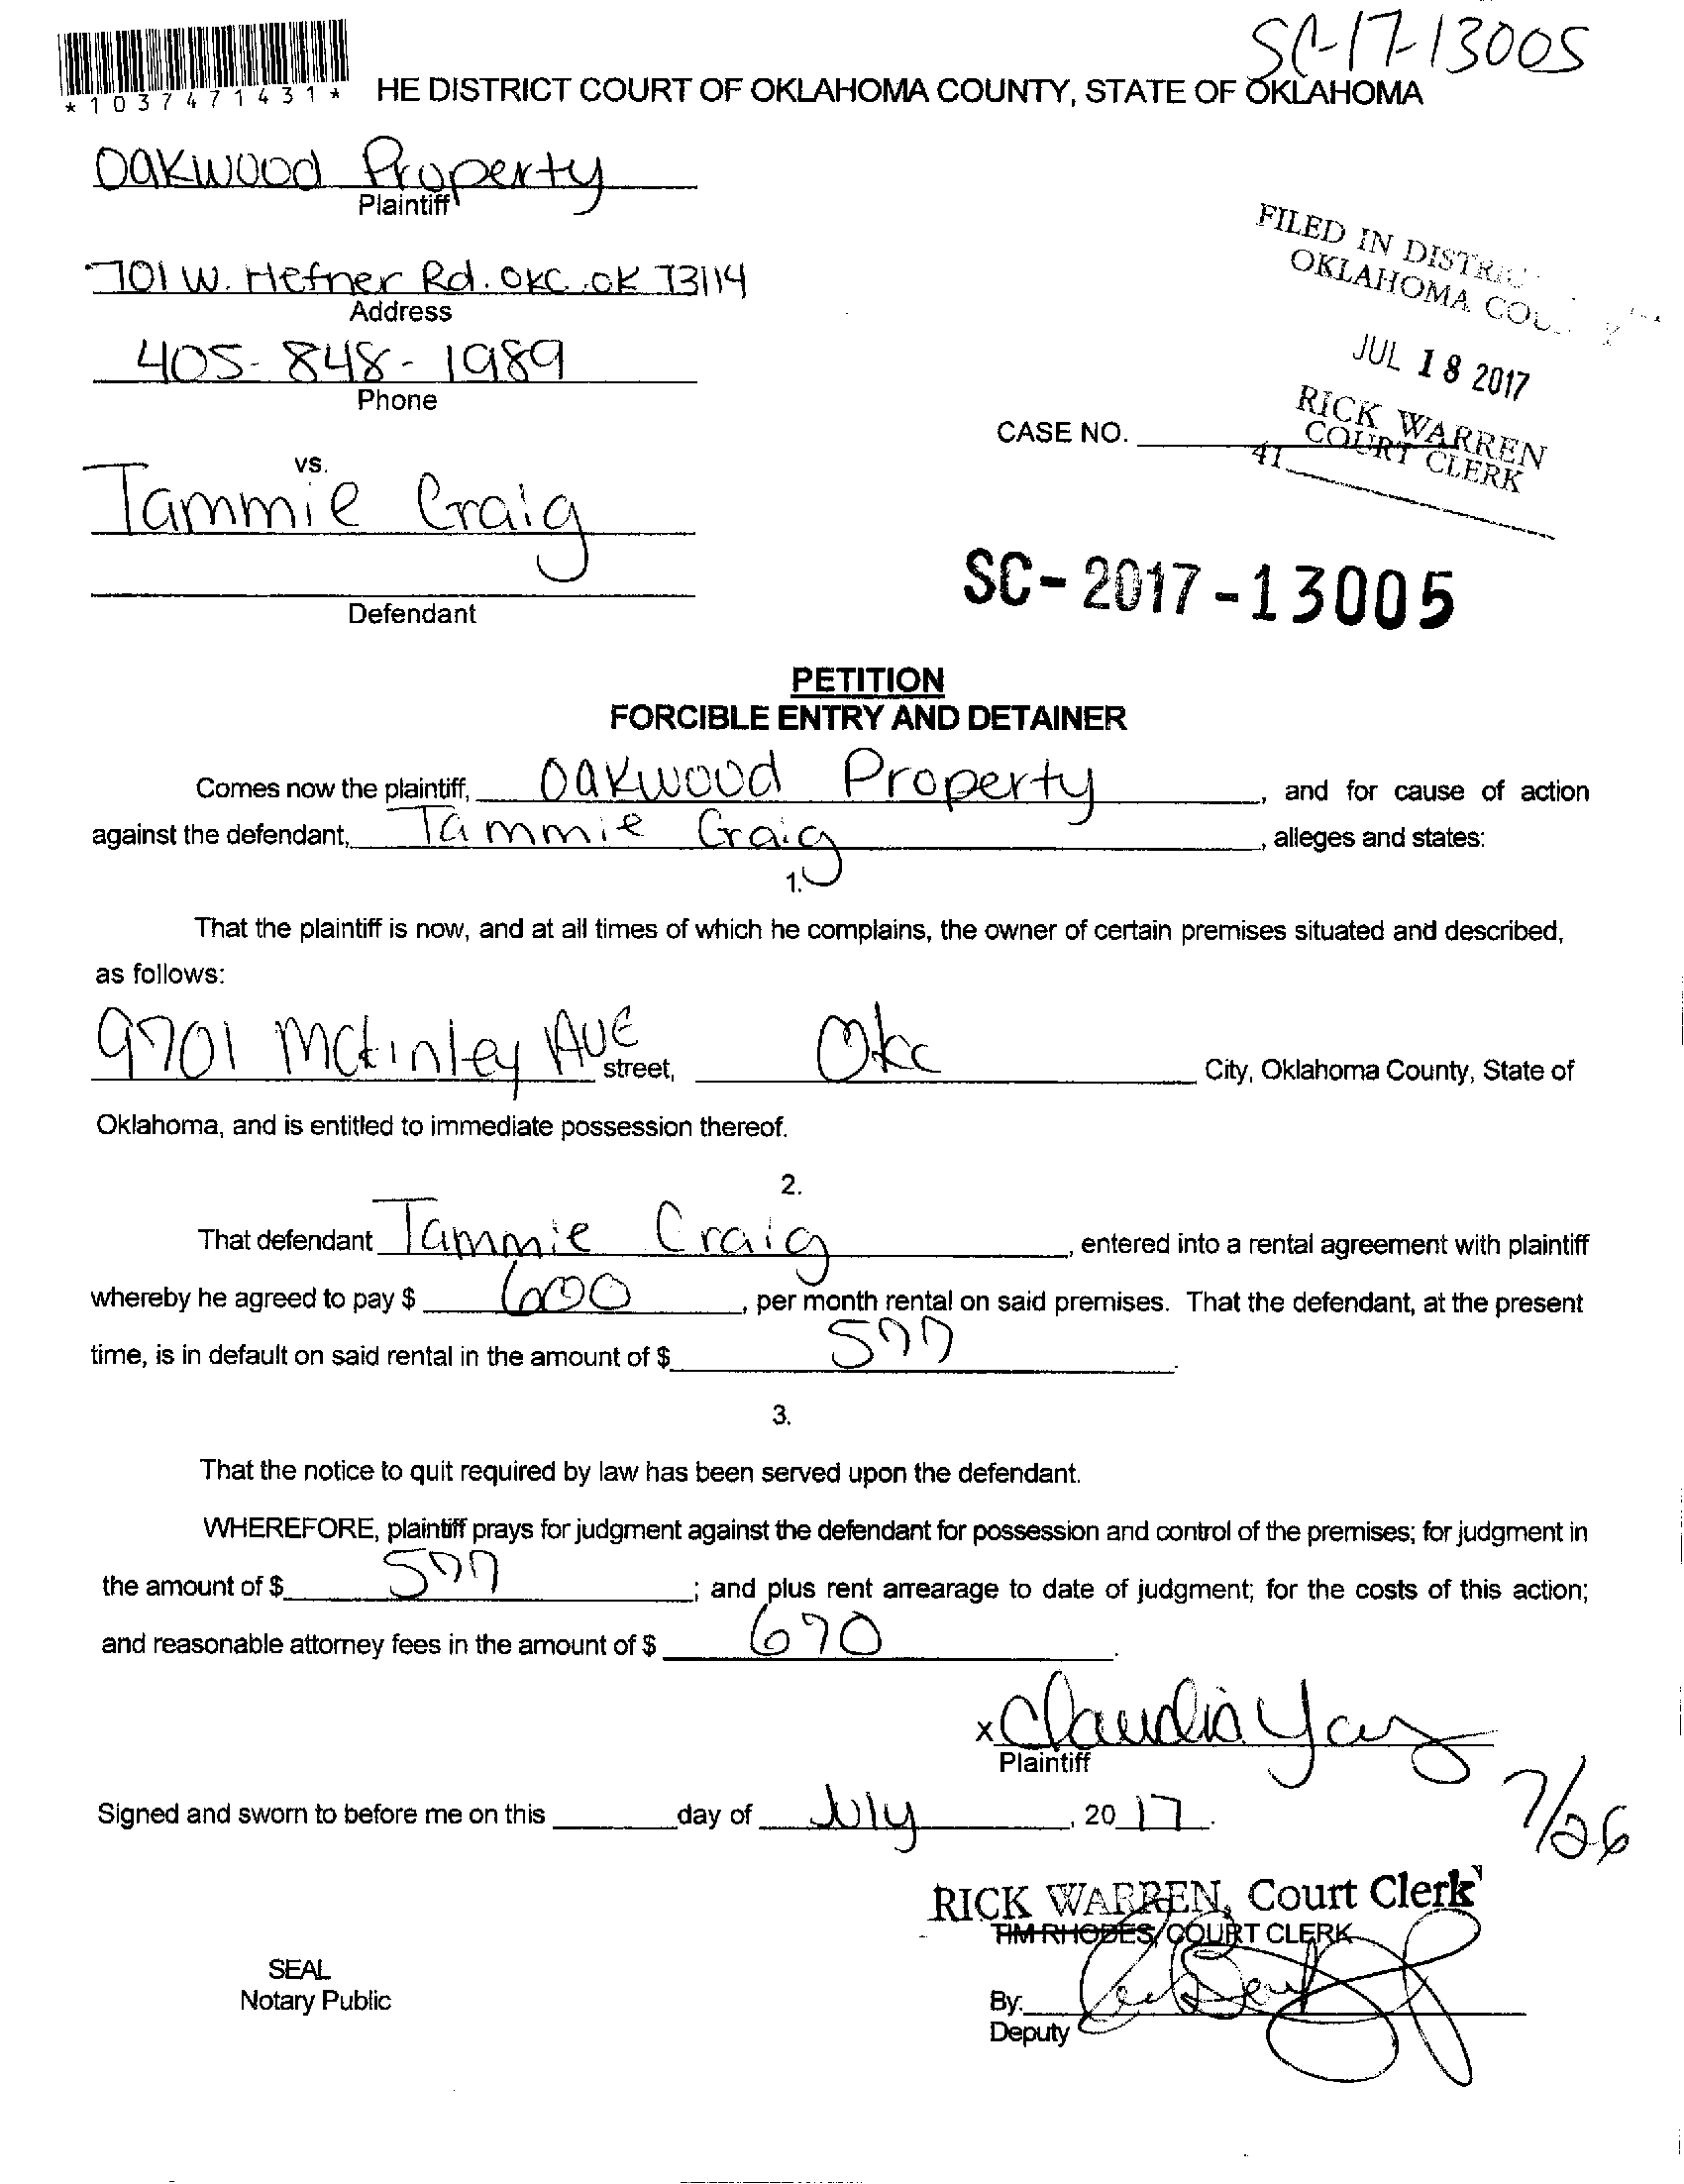 SC-17-13005
*1037471431*
HE DISTRICT COURT OF OKLAHOMA COUNTY, STATE OF OKLAHOMA
Oakwood Property
Plaintiff
701 W. Hefner Rd. OKC. OK 73114
Address
405-848-1989
Phone
FILED IN DISTR
OKLAHOMA COU
JUL 18 2017
RICK WARREN
COURT CLERK
41
CASE NO.
vs.
Tammie Craig
Defendant
SC-2017-13005
PETITION
FORCIBLE ENTRY AND DETAINER
Comes now the plaintiff, Oakwood Property, and for cause of action
against the defendant, Tammie Craig, alleges and states:
1.
That the plaintiff is now, and at all times of which he complains, the owner of certain premises situated and described,
as follows:
9701 McKinley Ave street, Okc City, Oklahoma County, State of
Oklahoma, and is entitled to immediate possession thereof.
2.
That defendant Tammie Craig, entered into a rental agreement with plaintiff
whereby he agreed to pay $ 600, per month rental on said premises. That the defendant, at the present
time, is in default on said rental in the amount of $ 577.
3.
That the notice to quit required by law has been served upon the defendant.
WHEREFORE, plaintiff prays for judgment against the defendant for possession and control of the premises; for judgment in
the amount of $ 577; and plus rent arrearage to date of judgment; for the costs of this action;
and reasonable attorney fees in the amount of $ 670.
x Claudia
Plaintiff
Signed and sworn to before me on this day of July, 20 17.
7/26
RICK WARREN, Court Clerk
TIM RHODES, COURT CLERK
SEAL
Notary Public
By:
Deputy